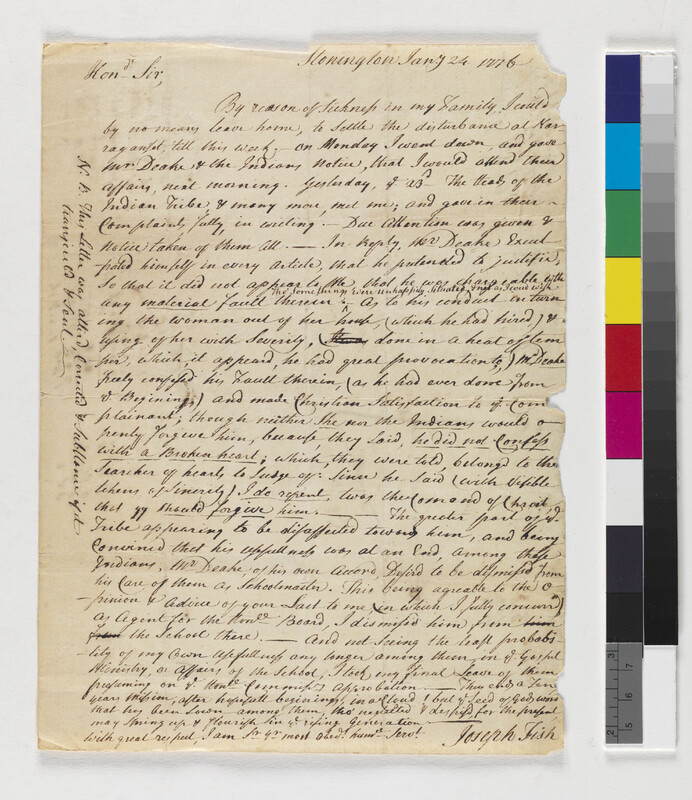 Stonington Jany 24 1776
Hond. Sir,
By reason of Sickness in my Family, I could
by no means leave home, to settle the disturbance at Nar-
raganset, till this week. — On Monday I went down, and gave
Mr Deake & the Indians Notice, that I would attend their
affairs, next morning. Yesterday, ye 23d The Heads of the
Indian Tribe, & many more, met me; and gave in their
Complaints, fully, in writing. — Due Attention was given &
Notice taken of them all. — In Reply, Mr Deake Excul-
pated himself in every Article, that he pretended to justifie,
So that it did not appear to Me, that he was chargeable with
any material Fault therein. — As to his conduct in turn
ing the woman out of her house, (which he had hired) &
using of her with Severity, done in a heat of tem
per, which, it appeard, he had great provocation to,) Mr Deake
freely confessed his Fault therein, (as he had ever done from
ye Beginning,) and made Christian Satisfaction to ye Com
plainant; though neither She nor the Indians would o-
penly forgive him, because they Said, he did not Confess
with a Broken heart; which, they were told, belongd to the
Searcher of hearts to Judge of: Since he Said (with visible
tokens of Sincerity) I do repent, twas the Comand of Christ
that yy should forgive him. — The greater part of ye
Tribe appearing to be disaffected toward him, and being
Convinced that his usefullness was at an End, among those
Indians, Mr Deake, of his own Accord, Desird to be dismissed from
his Care of them as Schoolmaster. This being agreable to the O-
pinion & Advice of your Last to me (in which I fully concurrd)
as Agent for the Honle Board, I dismissed him from
the School there. — And not Seeing the least probabi-
lity of my Own usefullness any longer among them, in ye Gospel
Ministry, or affairs of the School, I took my final Leave of them
presuming on ye Honle Commissrs Approbation — Thus ends a Ten
years Mission, after hopefull beginnings, in a Cloud! but ye Seed of Gods word
that has been Sown among them, tho' neglected & despisd for the present,
may Spring up & flourish in ye rising Generation —
With great respect, I am Sr yr most obedt humle Servt
Joseph Fish
N. B. This Letter was alterd, Corrected & Substance of it
transcribd & Sent. —